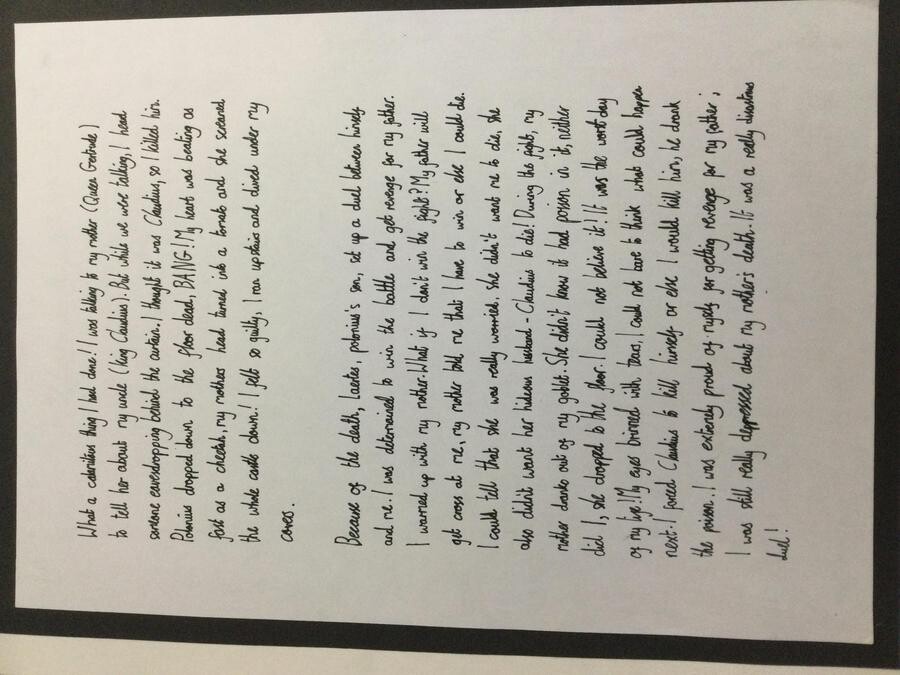 What a calamitous thing I had done! I was talking to my mother (Queen Gertrude)
to tell her about my uncle (King Claudius). But while we were talking, I heard
someone eavesdropping behind the curtain. I thought it was Claudius, so I killed him.
Polonius dropped down to the floor dead, BANG! My heart was beating as
fast as a cheetah, my mothers head turned into a tomato and she screamed
the whole castle down! I felt so guilty, I ran upstairs and dived under my
covers.
Because of the death, Laertes, polonius's son, set up a duel between himself
and me. I was determained to win the battle and get revenge for my father.
I warmed up with my mother. What if I don't win the fight? My father will
get cross at me, my mother told me that I have to win or else I could die.
I could tell that she was really worried, she didn't want me to die, she
also didn't want her hideous husband - Claudius to die! During the fight, my
mother dranks out of my goblet. She didn't know it had poison in it, neither
did I, she dropped to the floor. I could not believe it! It was the worst day
of my life! My eyes brimed with tears, I could not bare to think what could happen
next. I forced Claudius to kill himself or else I would kill him, he drank
the poison. I was extremly proud of myself for getting revenge for my father;
I was still really deppressed about my mother's death. It was a really disastrous
duel!